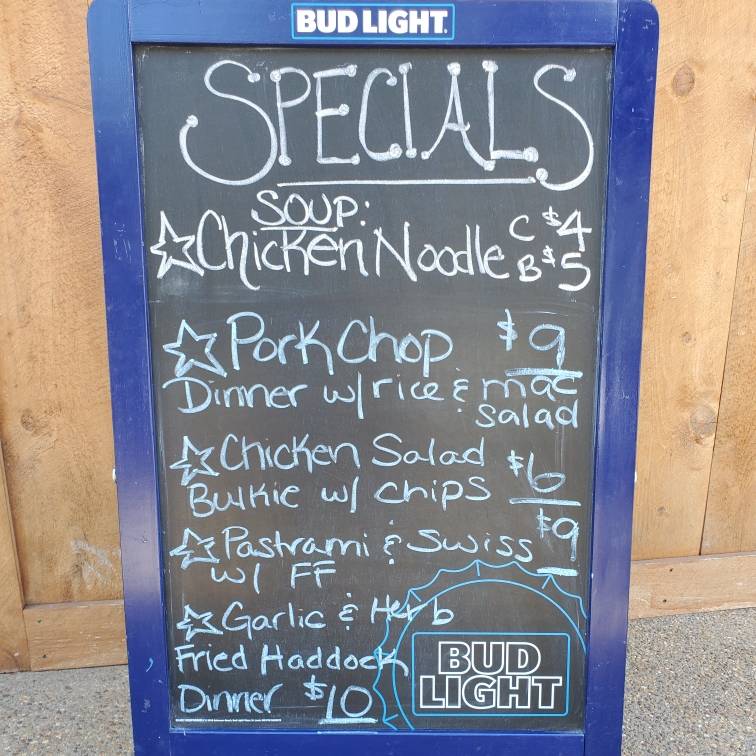 BUD LIGHT
SPECIALS
SOUP:
Chicken Noodle C $4
B $5
Pork Chop $9
Dinner w/rice & mac
salad
Chicken Salad $6
Bulkie w/ chips
Pastrami & Swiss $9
w/ FF
Garlic & Herb
Fried Haddock
Dinner $10
BUD
LIGHT